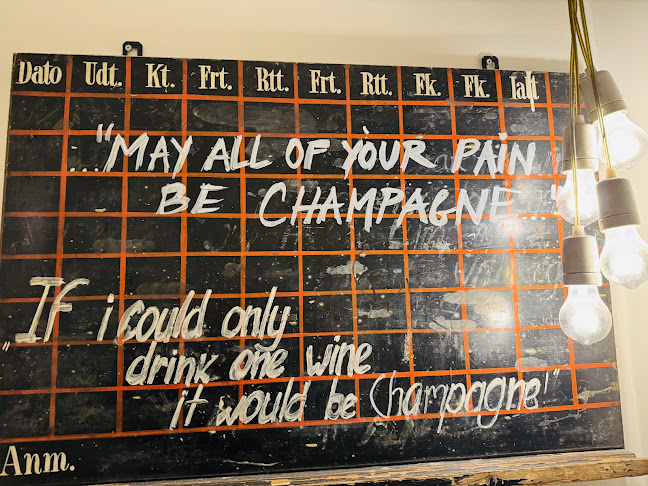 Dato Udt. Kt. Frt. Rtt. Frt. Rtt. Fk. Fk. Ialt
..."MAY ALL OF YOUR PAIN
BE CHAMPAGNE..."
"If i could only
drink one wine
it would be Champagne!"
Anm.